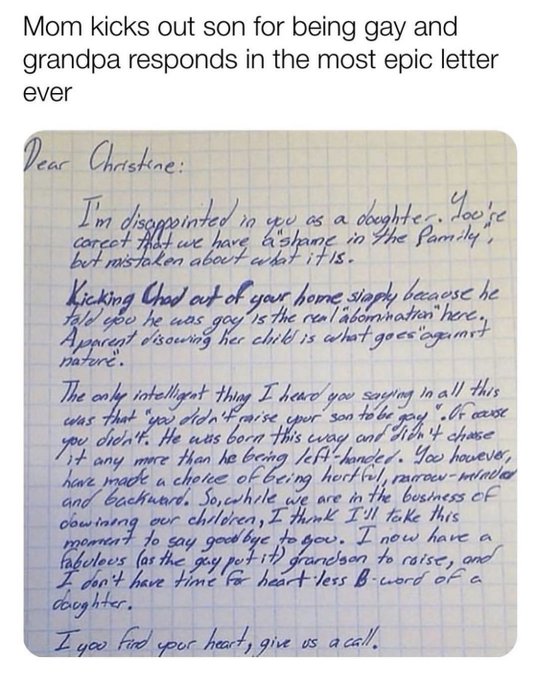 Mom kicks out son for being gay and
grandpa responds in the most epic letter
ever
Dear Christine:
I'm disappointed in you as a daughter. You're
corect that we have "a shame in the family",
but mistaken about what it is.
Kicking Chad out of your home simply because he
told you he was gay is the real "abomination" here.
A parent disowing her child is what goes "against
nature".
The only intelligent thing I heard you saying in all this
was that "you didn't raise your son to be gay". Of couse
you didn't. He was born this way and didn't choose
it any more than he being left-handed. You however,
have made a choice of being hurtful, narrow-minded
and backward. So, while we are in the business of
dowining our children, I think I'll take this
moment to say goodbye to you. I now have a
fabulous (as the gay put it) grandson to raise, and
I don't have time for heart-less B-word of a
daughter.
I you find your heart, give us a call.